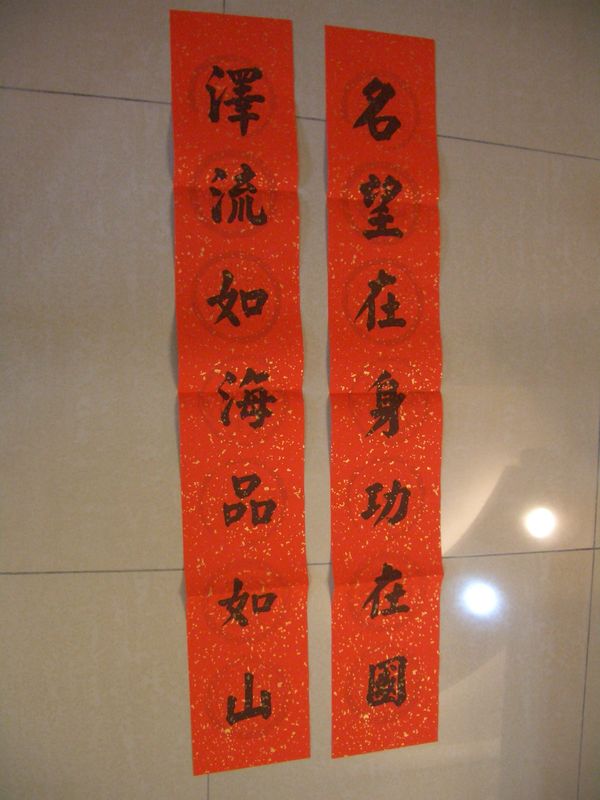 名望在身功在國
澤流如海品如山